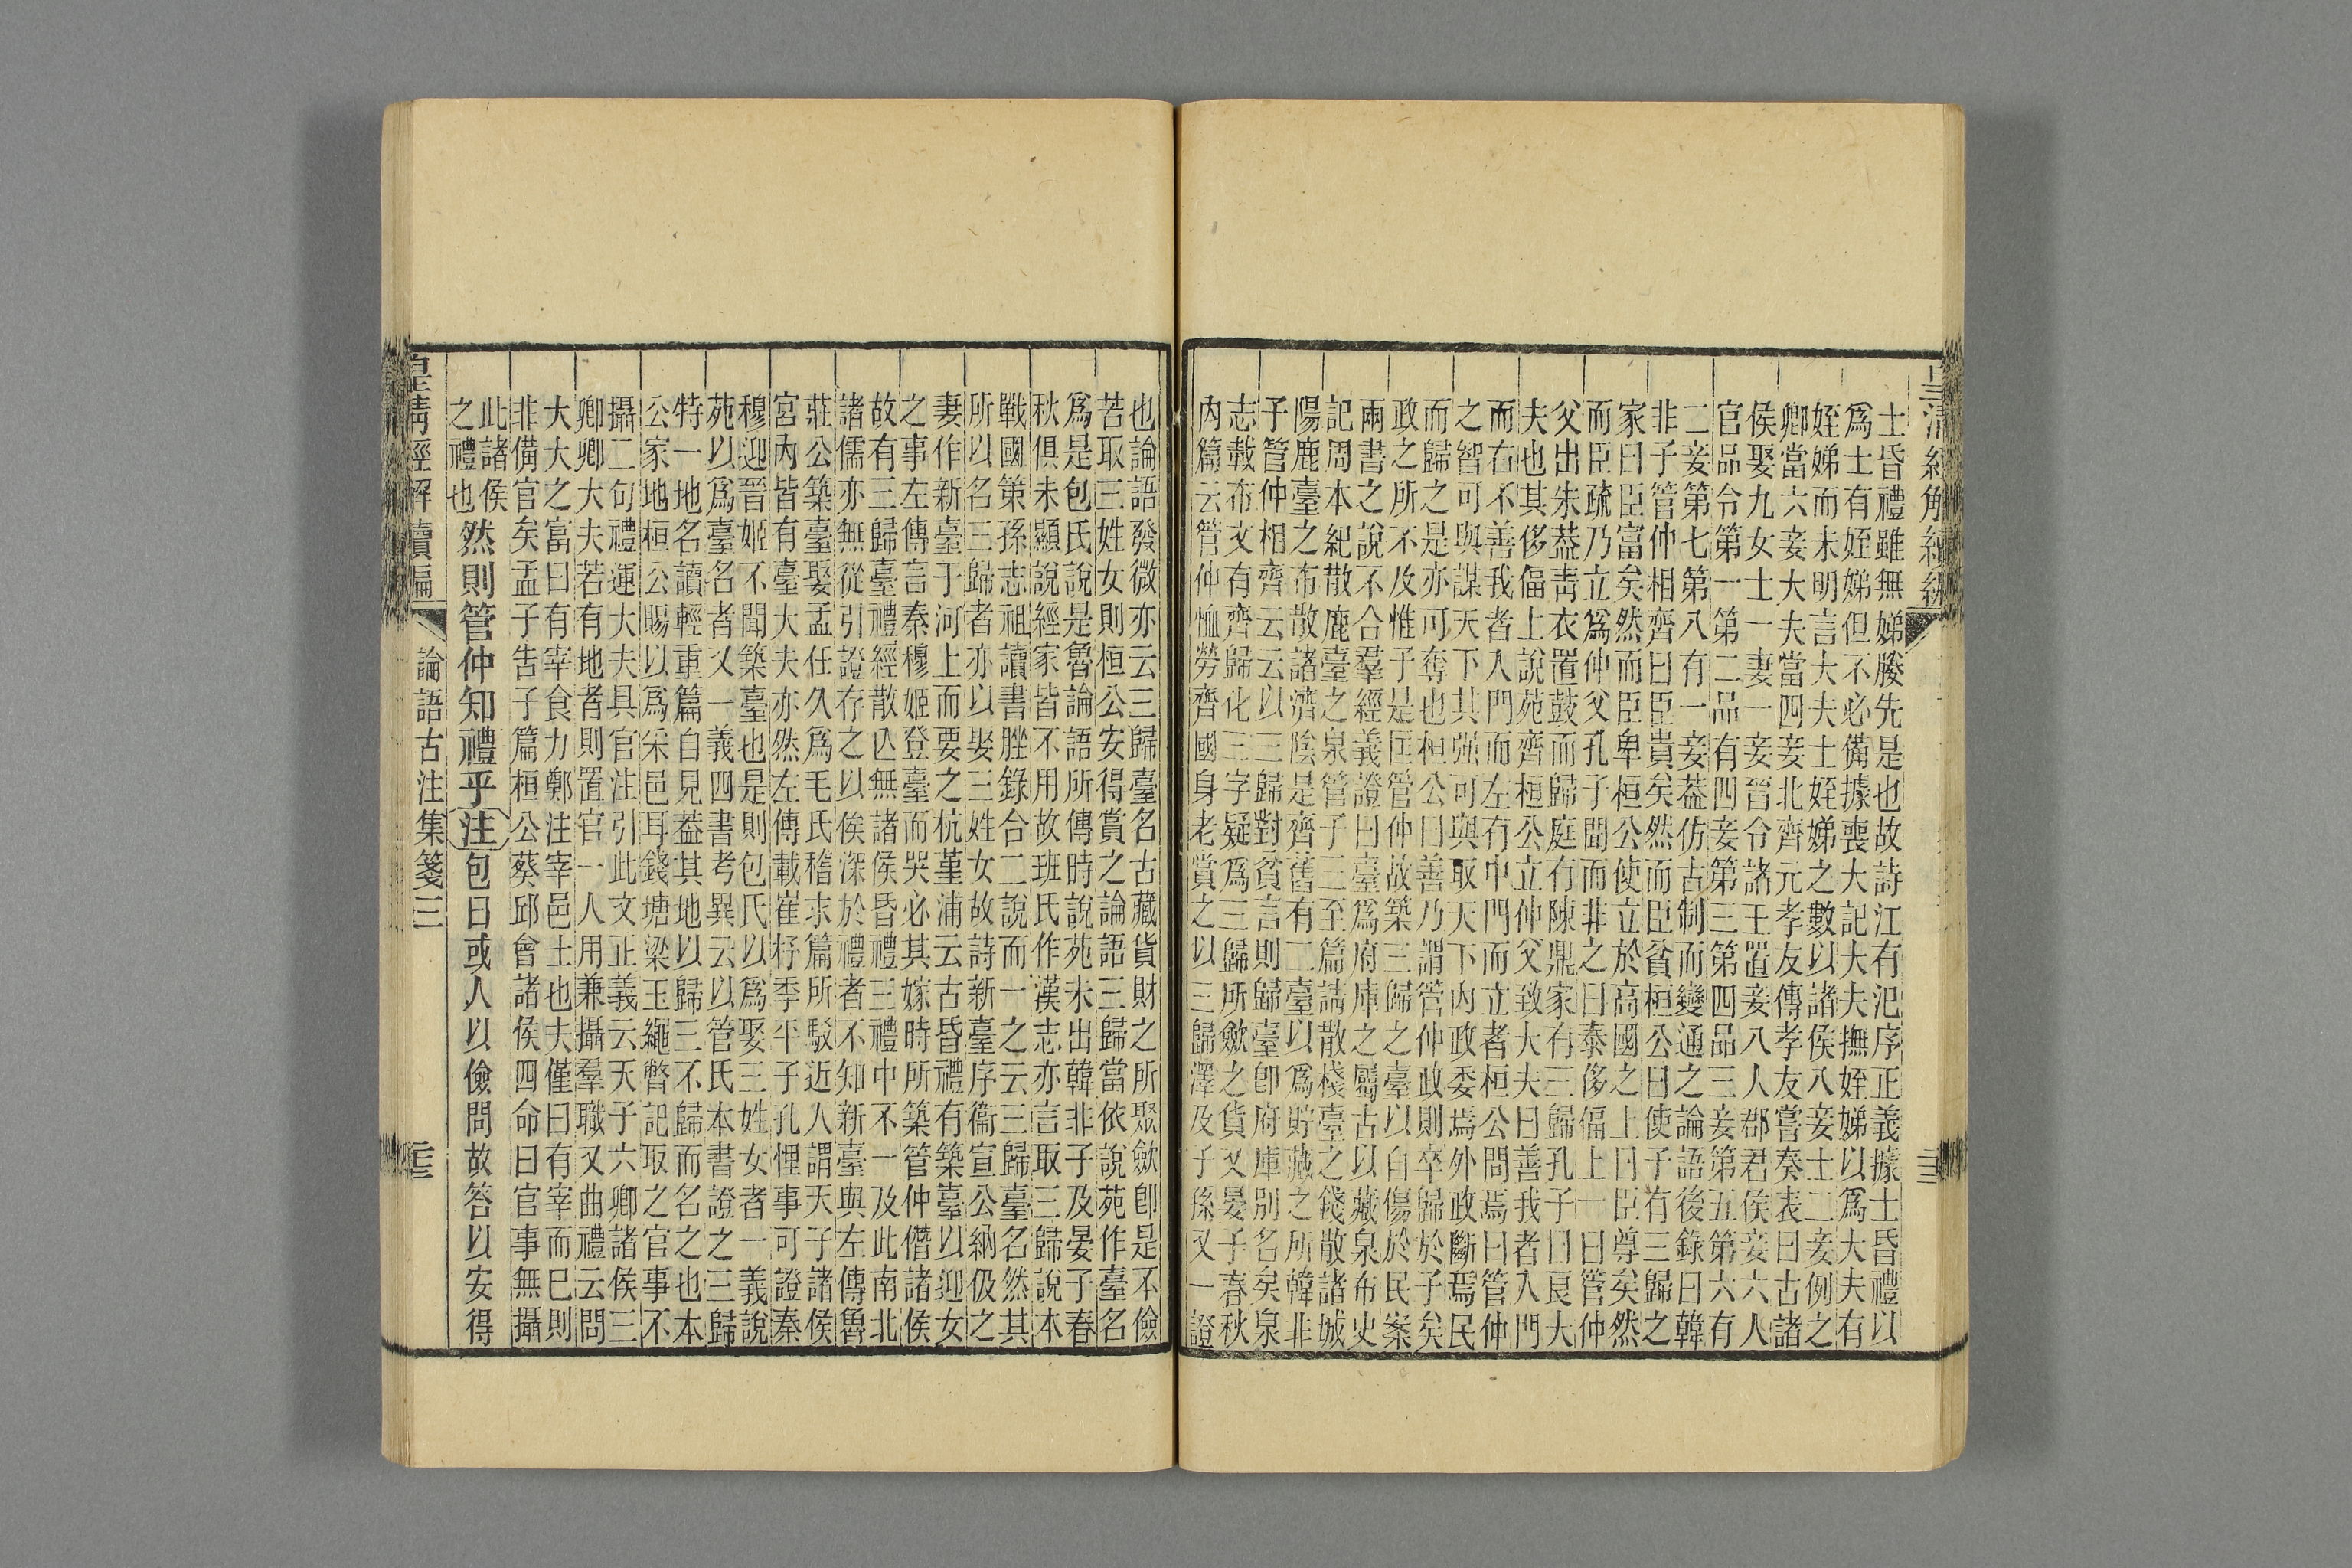 皇清經解續編
士昏禮雖無娣媵先是也故詩江有汜序正義據士昏禮以
爲士有姪娣但不必備據喪大記大夫撫姪娣以爲大夫有
姪娣而未明言大夫士姪娣之數以諸侯八妾士二妾例之
卿當六妾大夫當四妾北齊元孝友傳孝友嘗奏表曰古諸
侯娶九女士一妻一妾晉令諸王置妾八人郡君侯妾六人
官品令第一第二品有四妾第三第四品三妾第五第六有
二妾第七第八有一妾葢仿古制而變通之論語後錄曰韓
非子管仲相齊曰臣貴矣然而臣貧桓公曰使子有三歸之
家曰臣富矣然而臣卑桓公使立於高國之上曰臣尊矣然
而臣疏乃立爲仲父孔子聞而非之曰泰侈偪上一曰管仲
父出朱葢靑衣置鼓而歸庭有陳鼎家有三歸孔子曰良大
夫也其侈偪上說苑齊桓公立仲父致大夫曰善我者入門
而右不善我者入門而左有中門而立者桓公問焉曰管仲
之智可與謀天下其强可與取天下內政委焉外政斷焉民
而歸之是亦可奪也桓公曰善乃謂管仲政則卒歸於子矣
政之所不及惟子是匡管仲故築三歸之臺以自傷於民案
兩書之說不合羣經義證曰臺爲府庫之屬古以藏泉布史
記周本紀散鹿臺之泉管子三至篇請散棧臺之錢散諸城
陽鹿臺之布散諸濟陰是齊舊有二臺以爲貯藏之所韓非
子管仲相齊云云以三歸對貧言則歸臺卽府庫別名矣泉
志載布文有齊歸化三字疑爲三歸所斂之貨又晏子春秋
內篇云管仲恤勞齊國身老賞之以三歸澤及子孫又一證
也論語發微亦云三歸臺名古藏貨財之所聚斂卽是不儉
若取三姓女則桓公安得賞之論語三歸當依說苑作臺名
爲是包氏說是魯論語所傳時說苑未出韓非子及晏子春
秋俱未顯說經家皆不用故班氏作漢志亦言取三歸說本
戰國策孫志祖讀書脞錄合二說而一之云三歸臺名然其
所以名三歸者亦以娶三姓女故詩新臺序衞宣公納伋之
妻作新臺于河上而要之杭堇浦云古昏禮有築臺以迎女
之事左傳言秦穆姬登臺而哭必其嫁時所築管仲僭諸侯
故有三歸臺禮經散亾無諸侯昏禮三禮中不一及此南北
諸儒亦無從引證存之以俟深於禮者不知新臺與左傳魯
莊公築臺娶孟任久爲毛氏稽求篇所駁近人謂天子諸侯
宮內皆有臺大夫亦然左傳載崔杼季平子孔悝事可證秦
穆迎晉姬不聞築臺也是則包氏以爲娶三姓女者一義說
苑以爲臺名者又一義四書考異云以管氏本書證之三歸
特一地名讀輕重篇自見葢其地以歸三不歸而名之也本
公家地桓公賜以爲采邑耳錢塘梁玉繩瞥記取之官事不
攝二句禮運大夫具官注引此文正義云天子六卿諸侯三
卿卿大夫若有地者則置官一人用兼攝羣職又曲禮云問
大夫之富曰有宰食力鄭注宰邑士也夫僅曰有宰而巳則
非備官矣孟子告子篇桓公葵邱會諸侯四命曰官事無攝
此諸侯
之禮也
然則管仲知禮乎注包曰或人以儉問故答以安得
皇清經解續編
論語古注集箋三